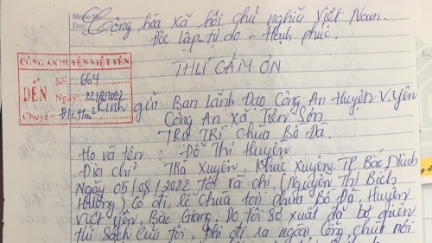 Cộng hòa xã hội chủ nghĩa Việt Nam.
Độc lập - tự do - Hạnh phúc.
THƯ CẢM ƠN
CÔNG AN HUYỆN VIỆT YÊN
ĐẾN
Số: 664
Ngày:
Chuyển:
Kính gửi Ban Lãnh Đạo Công An Huyện V. Yên
Công An Xã Tiên Sơn
TRỤ TRÌ Chùa Bổ Đà.
Họ và tên Đỗ Thị Huyên
Địa chỉ Thà Xuyên, Khúc Xuyên, TP Bắc Ninh
Ngày 05/08/2022 Tôi và chị (Nguyễn Thị Bích
Hường) có đi lễ chùa tại chùa Bổ Đà, Huyện
Việt Yên, Bắc Giang. Do tôi sơ xuất đã bỏ quên
túi sách của tôi, khi đi ra ngoài cổng chùa nơi